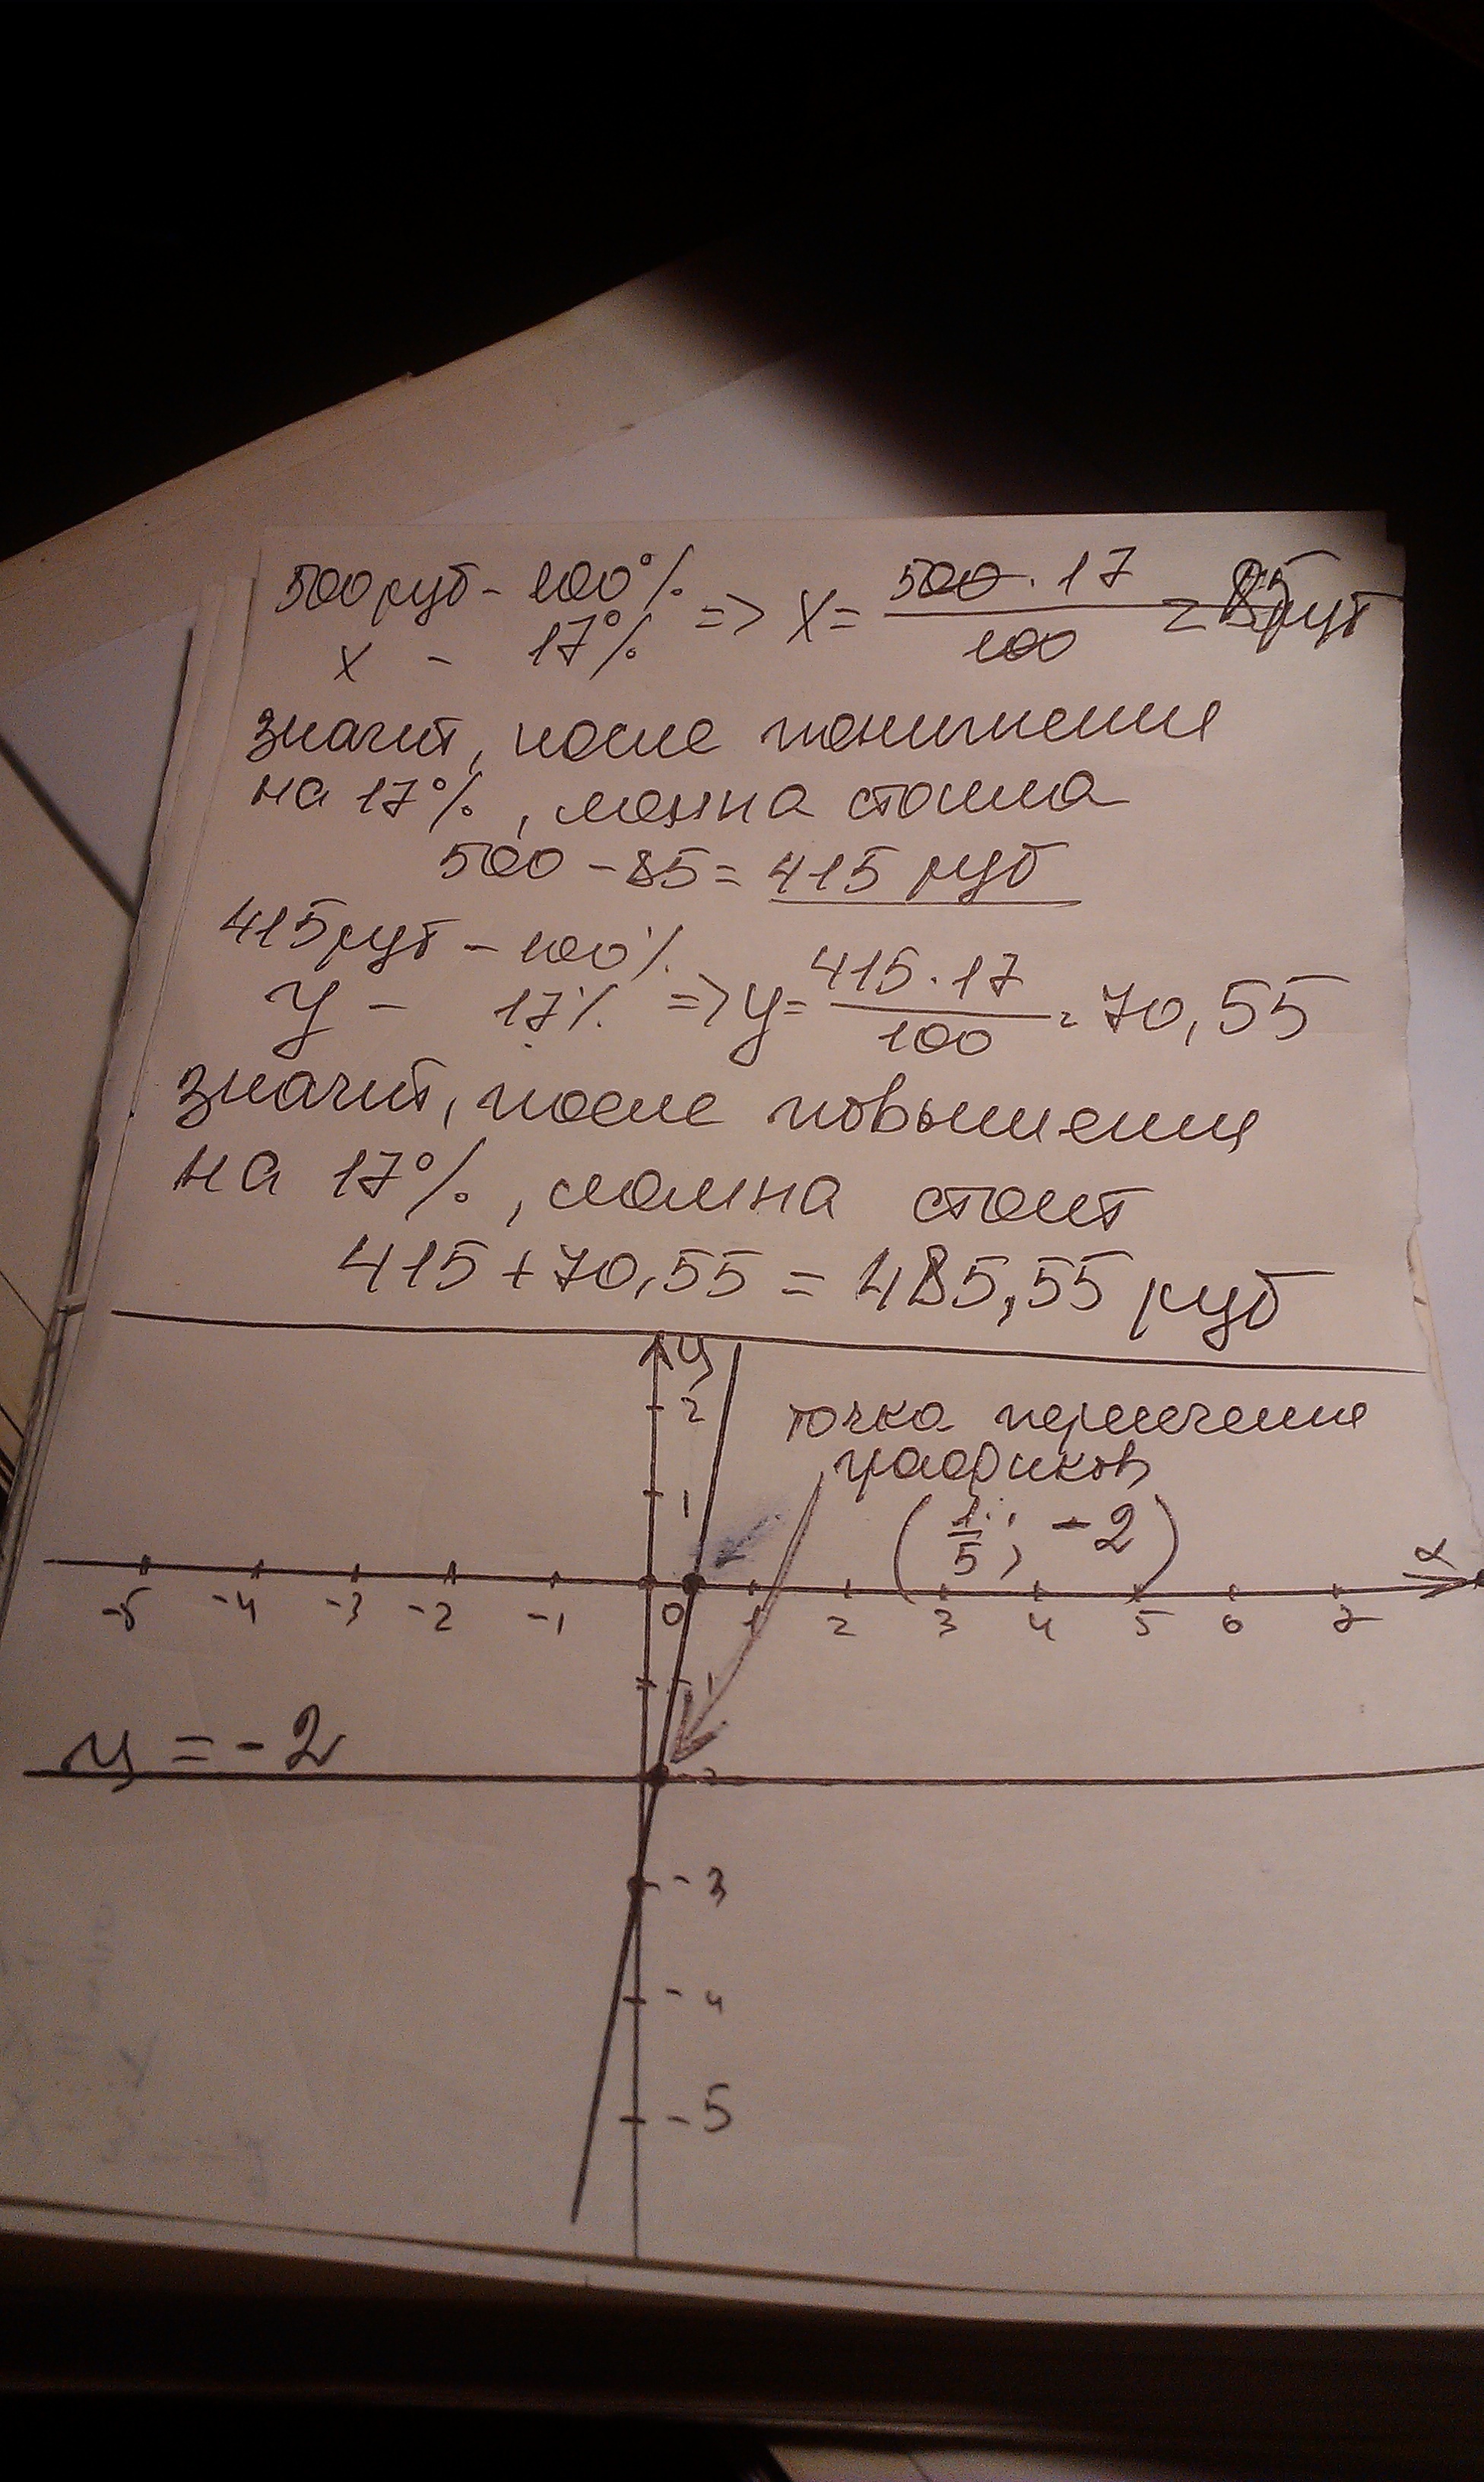 500 руб - 100% => x = 500 · 17 / 100 = 85 руб
x - 17%
значит, после понижения
на 17%, стоила
500 - 85 = 415 руб
415 руб - 100% => y = 415 · 17 / 100 = 70,55
y - 17%
значит, после повышения
на 17%, стоит
415 + 70,55 = 485,55 руб
y
2
точка пересечения
графиков
1
(1/5; -2)
x
-5 -4 -3 -2 -1 0 1 2 3 4 5 6 7
-1
y = -2
-2
-3
-4
-5